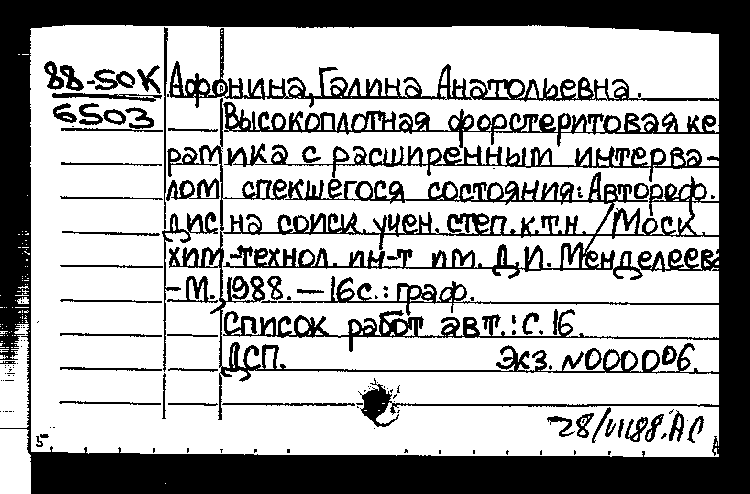 88-50К Афонина, Галина Анатольевна.
6503 Высокоплотная форстеритовая ке
рамика с расширенным интерва-
лом спекшегося состояния: Автореф.
дис. на соиск. учен. степ. к.т.н. / Моск.
хим.-технол. ин-т им. Д.И. Менделеева
-М., 1988. — 16с.: граф.
Список работ авт.: С. 16.
ДСП. Экз. N000006.
28/VII88. АС
5.